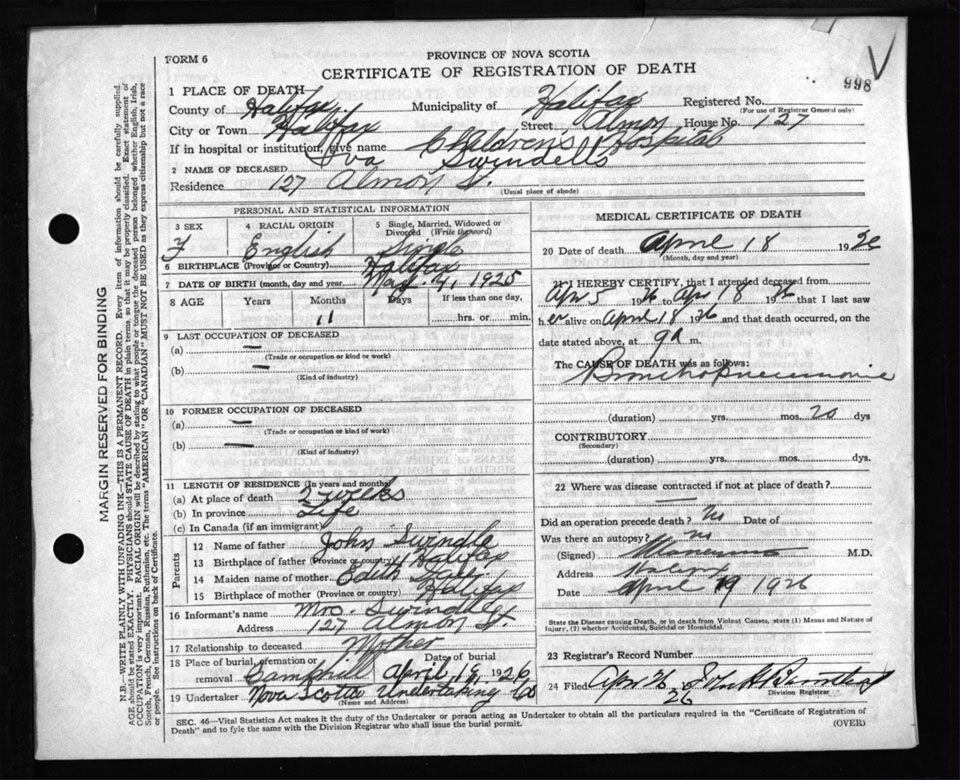 FORM 6
PROVINCE OF NOVA SCOTIA
CERTIFICATE OF REGISTRATION OF DEATH
998
1 PLACE OF DEATH
County of Halifax Municipality of Halifax Registered No.
(For use of Registrar General only)
City or Town Halifax Street Almon House No. 127
If in hospital or institution, give name Children's Hospital
2 NAME OF DECEASED Iva Swindells
Residence 127 Almon St.
(Usual place of abode)
PERSONAL AND STATISTICAL INFORMATION
3 SEX F
4 RACIAL ORIGIN English
5 Single, Married, Widowed or Divorced (Write the word) Single
6 BIRTHPLACE (Province or Country) Halifax
7 DATE OF BIRTH (month, day and year) May 4, 1925
8 AGE Years Months Days If less than one day,
11 hrs. or min.
9 LAST OCCUPATION OF DECEASED
(a) —
(Trade or occupation or kind or work)
(b) —
(Kind of industry)
10 FORMER OCCUPATION OF DECEASED
(a) —
(Trade or occupation or kind of work)
(b) —
(Kind of industry)
11 LENGTH OF RESIDENCE (In years and months)
(a) At place of death 2 weeks
(b) In province Life
(c) In Canada (if an immigrant)
Parents
12 Name of father John Swindle
13 Birthplace of father (Province or country) Halifax
14 Maiden name of mother Edith
15 Birthplace of mother (Province or country) Halifax
16 Informant's name Mrs. Swindle
Address 127 Almon St
17 Relationship to deceased Mother
18 Place of burial, cremation or removal Camphill Date of burial April 19, 1926
19 Undertaker Nova Scotia Undertaking Co
(Name and Address)
MEDICAL CERTIFICATE OF DEATH
20 Date of death April 18 1926
(Month, day and year)
21 I HEREBY CERTIFY, that I attended deceased from
Apr 5 1926 to Apr 18 1926 that I last saw
her alive on April 18 1926 and that death occurred, on the
date stated above, at 9 a m.
The CAUSE OF DEATH was as follows:
Bronchopneumonie
(duration) yrs. mos. 20 dys
CONTRIBUTORY
(Secondary)
(duration) yrs. mos. dys.
22 Where was disease contracted if not at place of death?
Did an operation precede death? No Date of
Was there an autopsy? no
(Signed) M.D.
Address Halifax
Date April 19 1926
State the Disease causing Death, or in death from Violent Causes, state (1) Means and Nature of
Injury, (2) whether Accidental, Suicidal or Homicidal.
23 Registrar's Record Number
24 Filed Apr 26 26
Division Registrar
SEC. 46—Vital Statistics Act makes it the duty of the Undertaker or person acting as Undertaker to obtain all the particulars required in the "Certificate of Registration of
Death" and to fyle the same with the Division Registrar who shall issue the burial permit. (OVER)
MARGIN RESERVED FOR BINDING
N.B.—WRITE PLAINLY WITH UNFADING INK—THIS IS A PERMANENT RECORD. Every item of information should be carefully supplied.
AGE should be stated EXACTLY. PHYSICIANS should STATE CAUSE OF DEATH in plain terms, so that it may be properly classified. Exact statement of
OCCUPATION is very important. RACIAL ORIGIN will be described by stating to what people or tongue the deceased person belonged whether English, Irish,
Scotch, French, German, Russian, Ruthenian, etc. The terms "AMERICAN" OR "CANADIAN" MUST NOT BE USED as they express citizenship but not a race
or people. See instructions on back of Certificate.